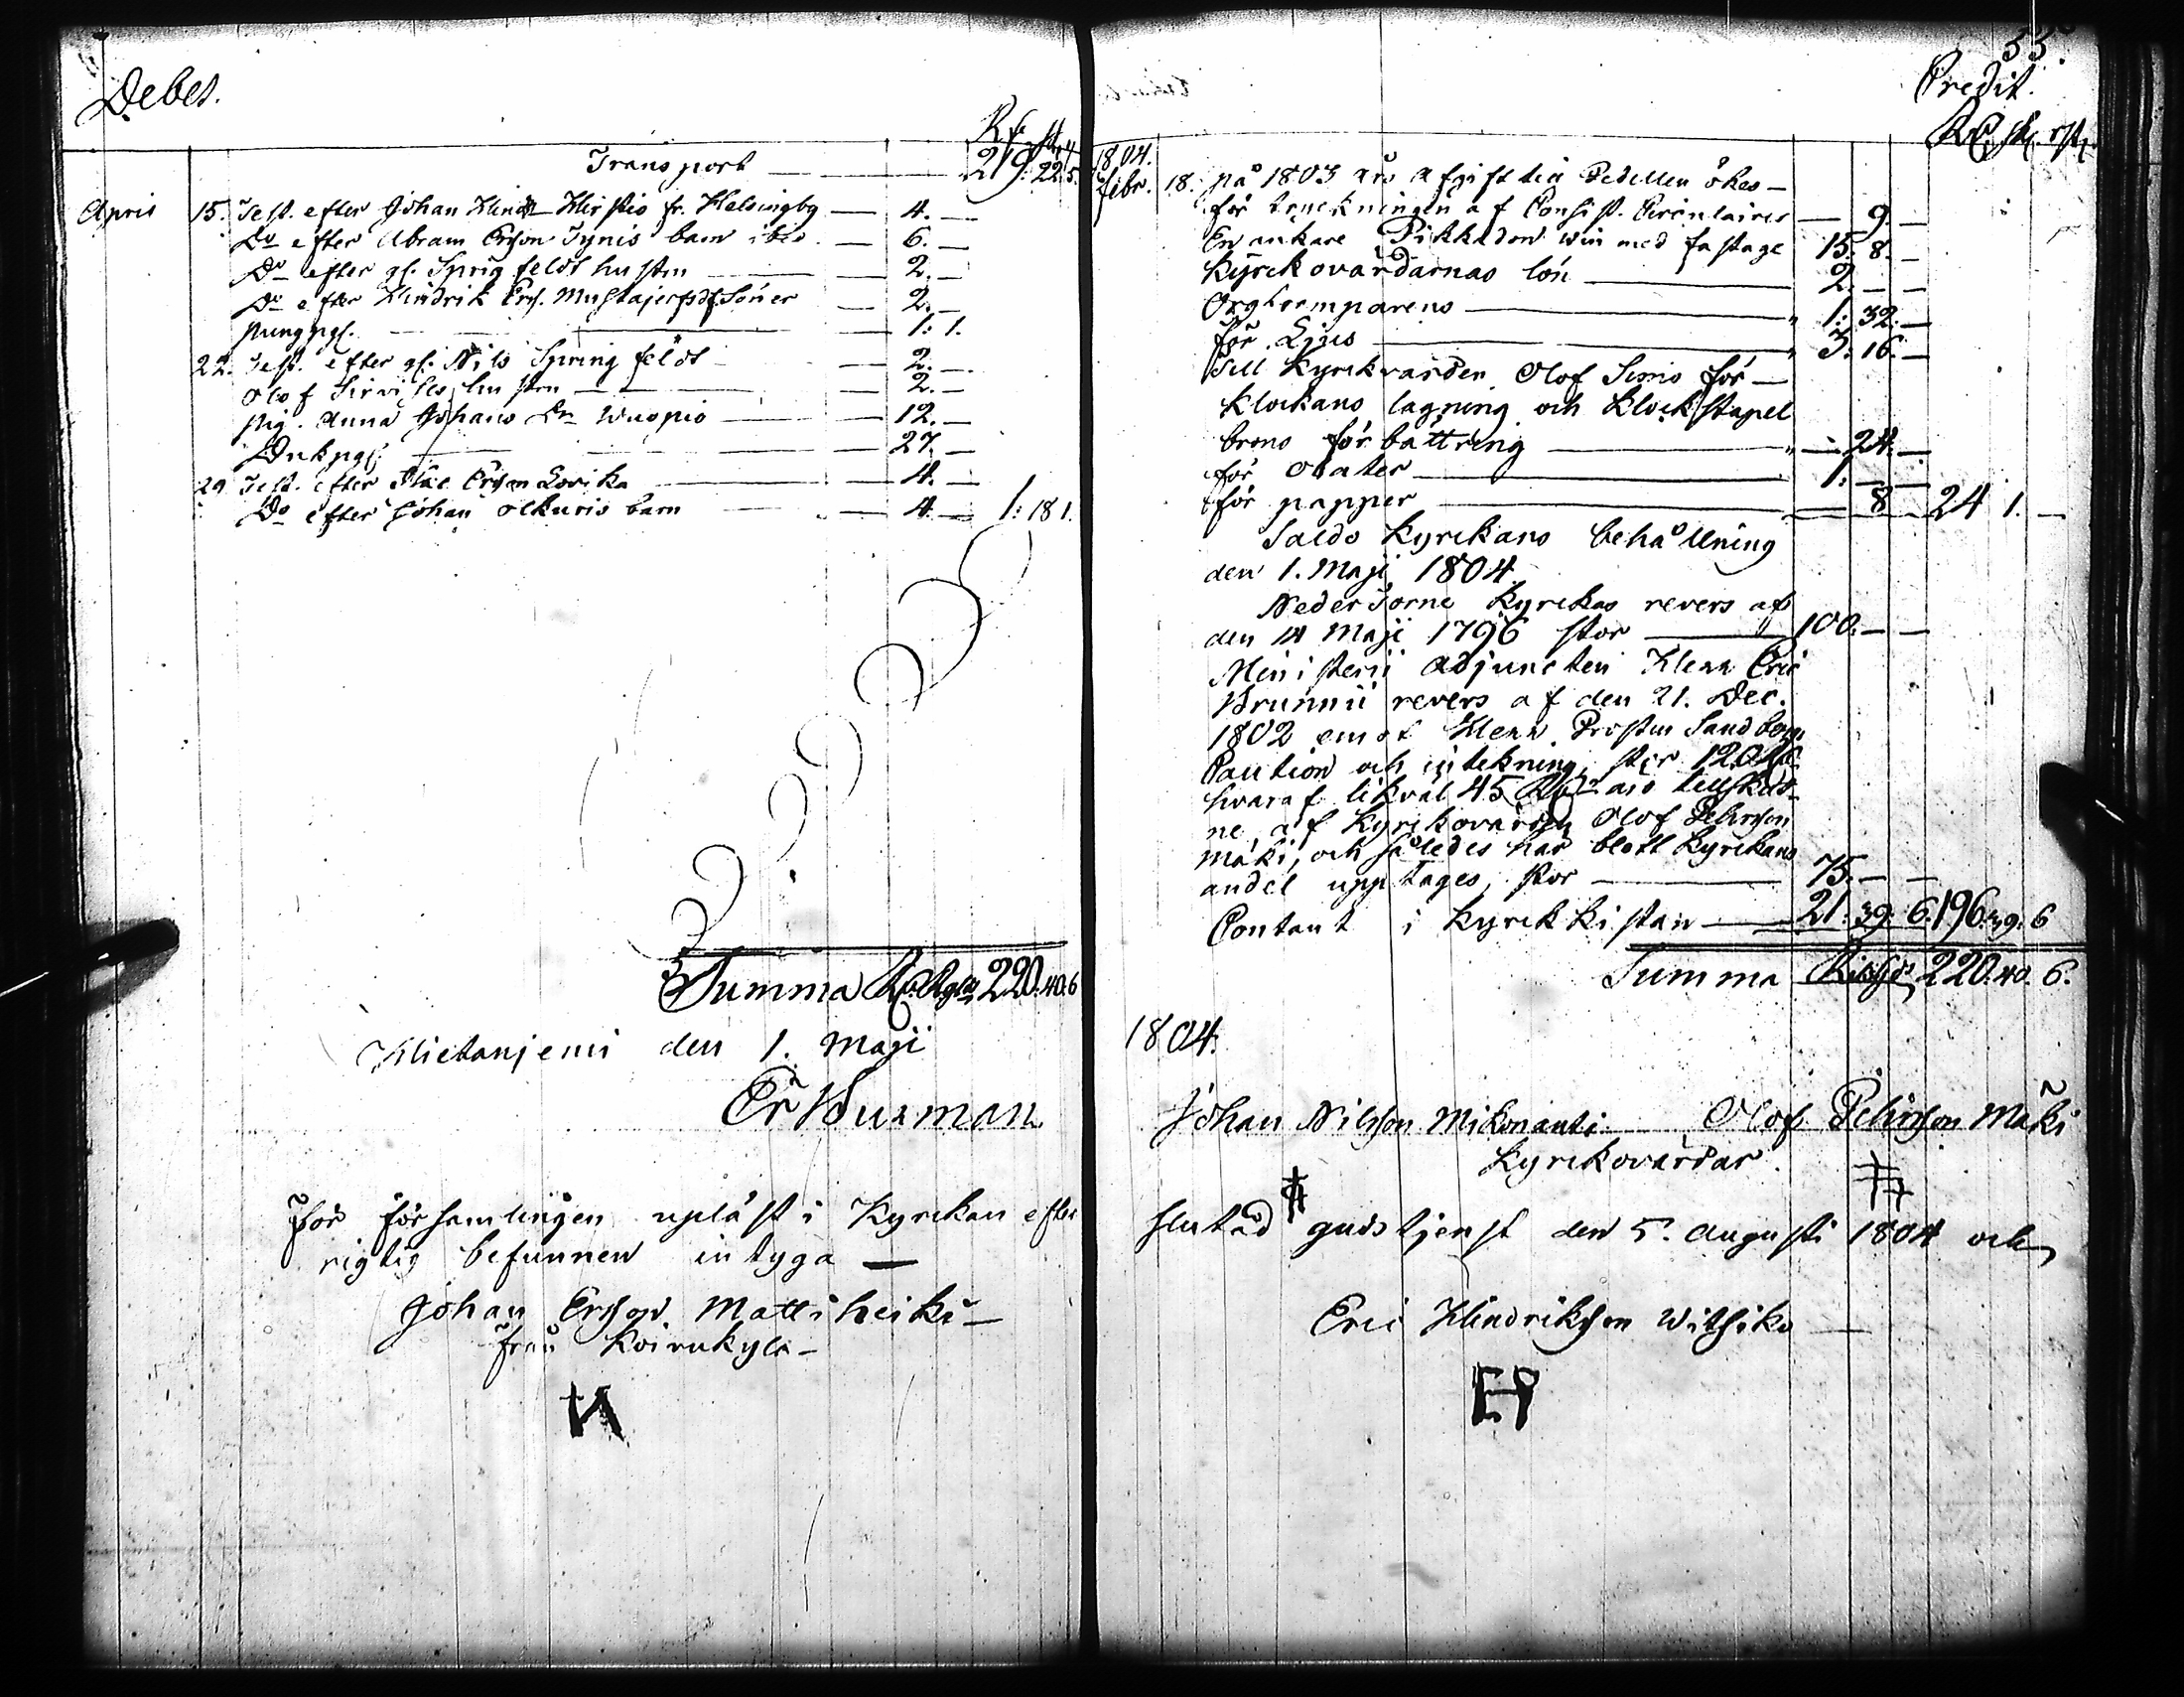 Debet.
Transport — 219: 22. 5.
April 15. Test. efter Johan Hind— — fr. Helsingbg — 4. —
Do efter Abram Ersson Tynis barn ibid. — 6. —
Do efter gl. Springfeldt hustru — 2. —
Do efter Hindrik Ers. — Söner — 2. —
pungpgr. — 1: 1.
22. Test. efter gl. Nils Springfeldt — 2. —
Olof hustru — 2. —
pig. Anna Johans Dr Wuopio — 12. —
Dukpgr. — 27. —
29 Test. efter Ersson Lovika — 4. —
Do efter Johan Olkuris barn — 4. — 1: 18 1.
Summa 220: 40. 6
Hietaniemi den 1. Maji
Er Burman
För församlingen upläst i Kyrckan efter
rigtig befunnen intyga —
Johan Ersson Mattiheiki —
från Koirukyla —
33.
Credit.
Rd. sk. rst.
1804.
Febr. 18. på 1803 års afgiften Pedellen ökes —
för tryckningen af Consist. Circulairer — 9. —
En ankare Pikkadon win med fastage 15: 8. —
Kyrckovärdarnas lön — 2. — —
Orgltramparens — 1: 32. —
för Ljus — 3: 16. —
Till Kyrckvärden Olof Simo för —
klockans lagning och Klockstapel
brons förbättring — 24. —
för Oblater — 1. — —
för papper — 8 24 1. —
Saldo Kyrckans behållning
den 1. Maji 1804
Neder Torne Kyrckas revers af
den 14 Maji 1796 stor — 100. — —
Ministerii Adjuncten Herr Eric
Brunnii revers af den 21. Dec.
1802 emot Herr Prosten Sandberg
Caution och inteckning, stor 120 Rd
hvaraf likväl 45 Rd äro tillskut-
ne af Kyrckovärden Olof Pehrsson
Mäki, och således här blott Kyrckans
andel upptages, stor — 75. — —
Contant i Kyrckkistan — 21: 39. 6. 196: 39: 6
Summa Riksgds 220: 40. 6.
1804.
Johan Nilsson Mikonanti Olof Pehrsson Mäki
Kyrckovärdar.
slutad gudstjenst den 5. Augusti 1804 och
Eric Hindriksson Witsiko —